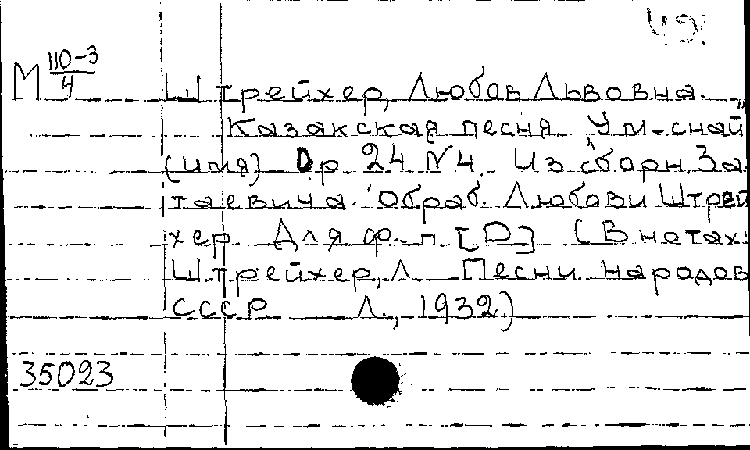 49.
М 110-3/4
Штрейхер, Любовь Львовна.
Казакская песня "Ум-снай"
(имя) Op 24 N4. Из сборн. За-
таевича. Обраб. Любови Штрей-
хер. Для ф.-п. [D] (В нотах:
Штрейхер, Л. Песни народов
СССР Л., 1932)
35023